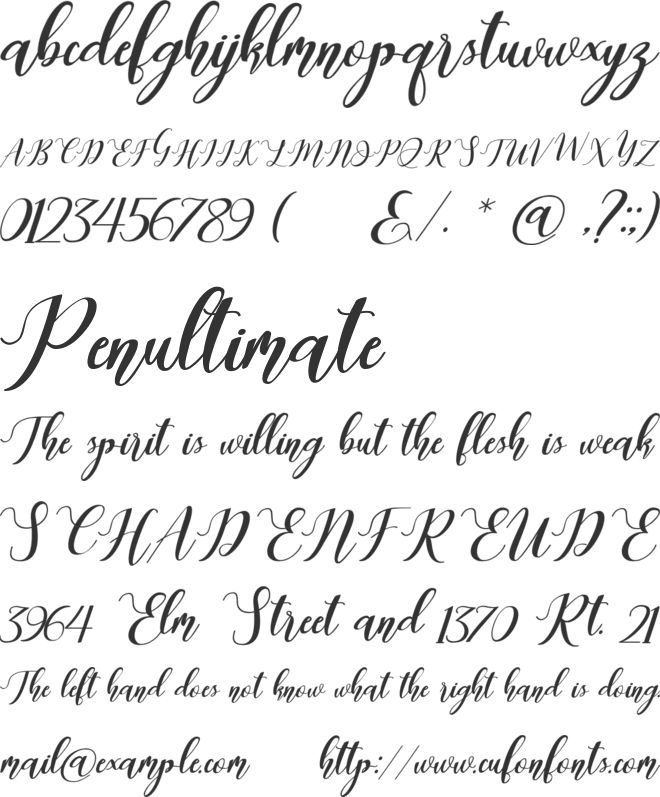 abcdefghijklmnopqrstuvwxyz
ABCDEFGHIJKLMNOPQRSTUVWXYZ
0123456789 ( &/. * @ ,?:;)
Penultimate
The spirit is willing but the flesh is weak
SCHADENFREUDE
3964 Elm Street and 1370 Rt. 21
The left hand does not know what the right hand is doing.
mail@example.com http://www.cufonfonts.com